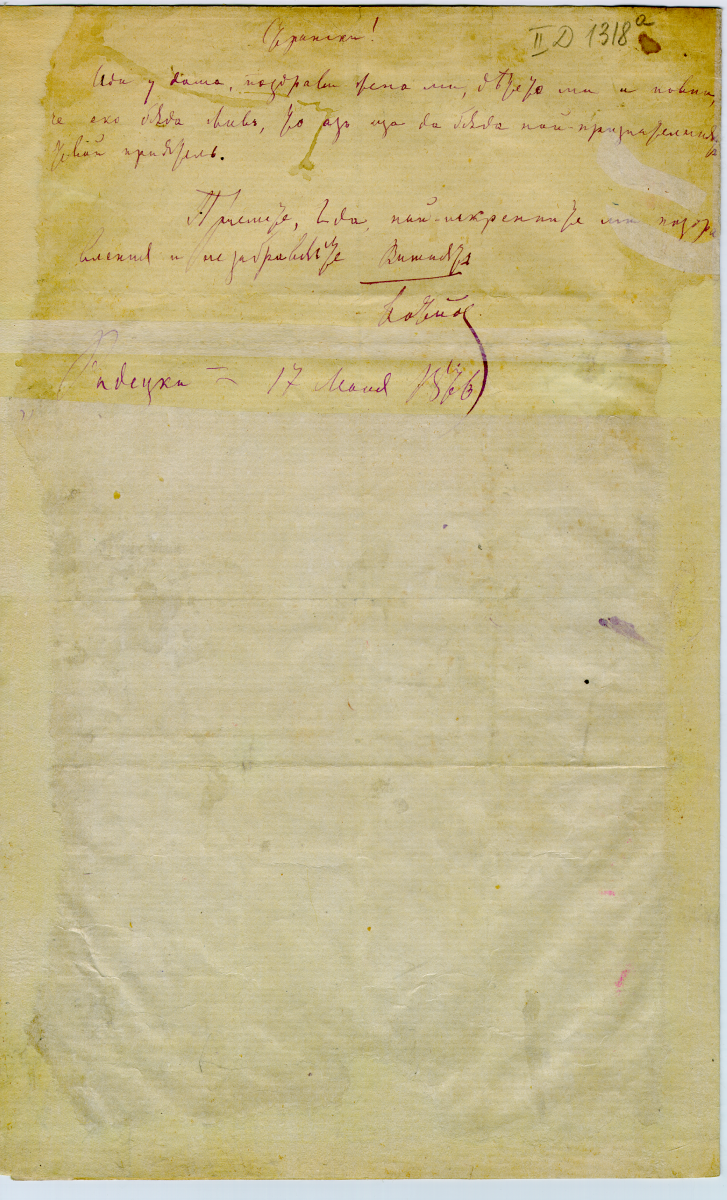 II D 1318 a
Странски!
Иди у дома, поздрави жена ми, дѣтето ми и помни,
че ако бѫда живъ, то азъ ща да бѫда най-признателният
твой приятель.
Приемете, Ида, най-искренните ми поздра
вления и не забравяйте Вашия
Ботйов
Радецки — 17 Маия 1876